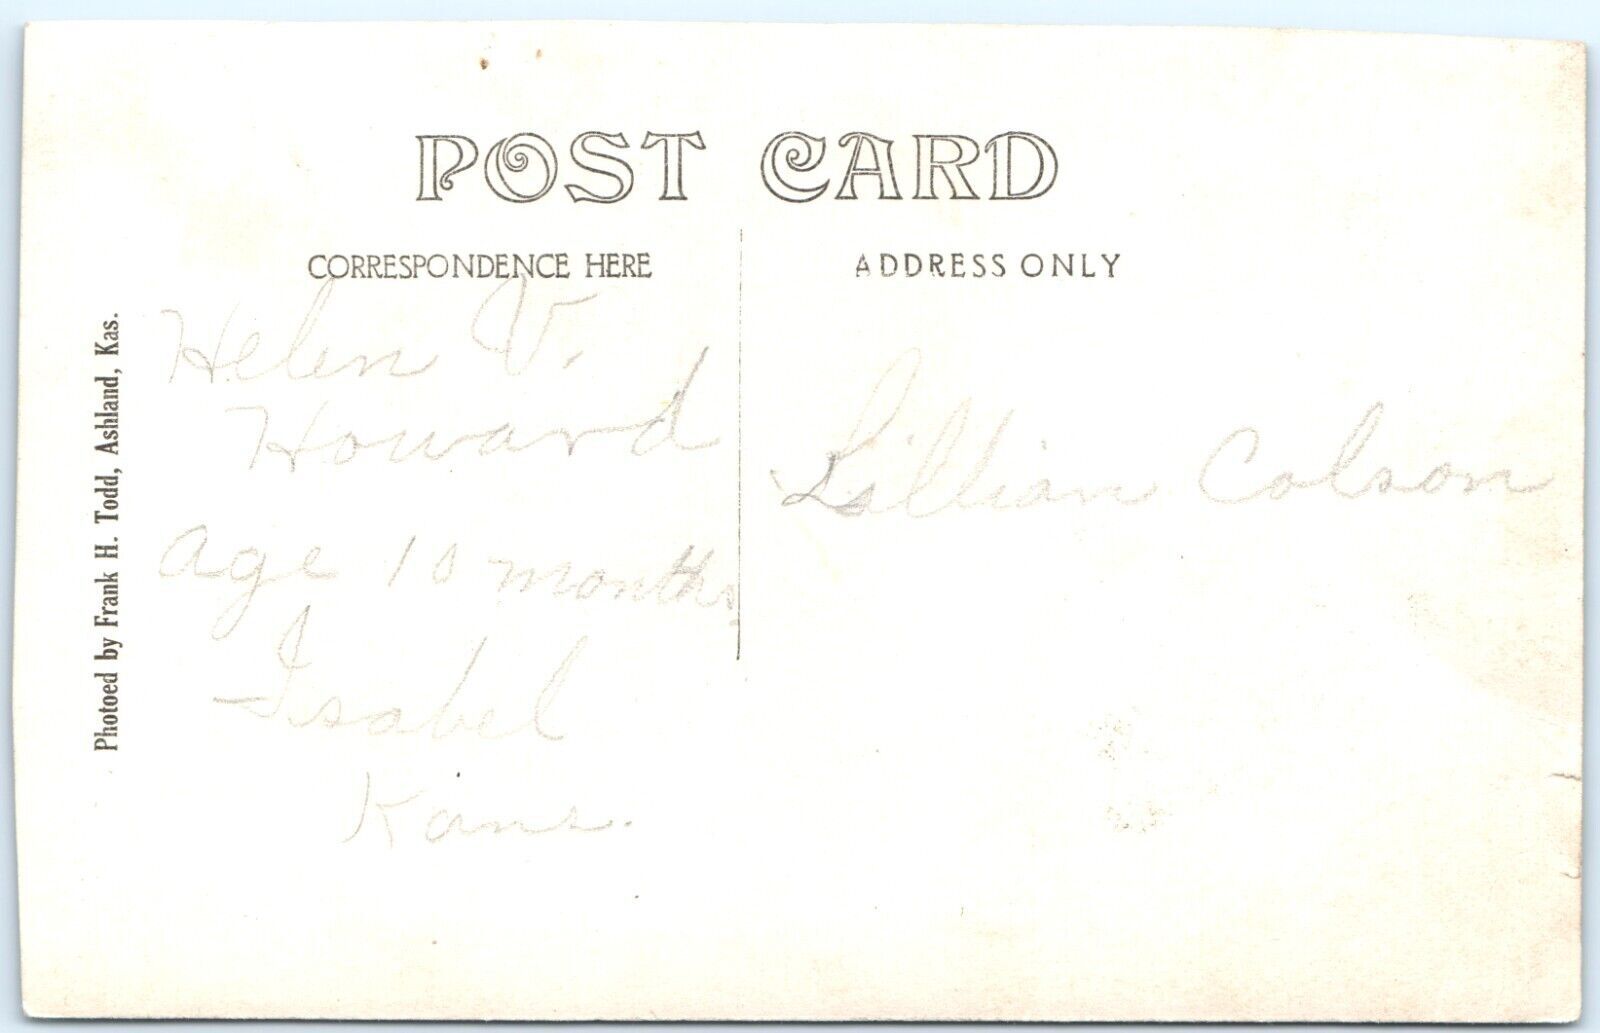 POST CARD
CORRESPONDENCE HERE
ADDRESS ONLY
Photoed by Frank H. Todd, Ashland, Kas.
Helen V.
Howard
age 10 months
Isabel
Kans.
Lillian Colson